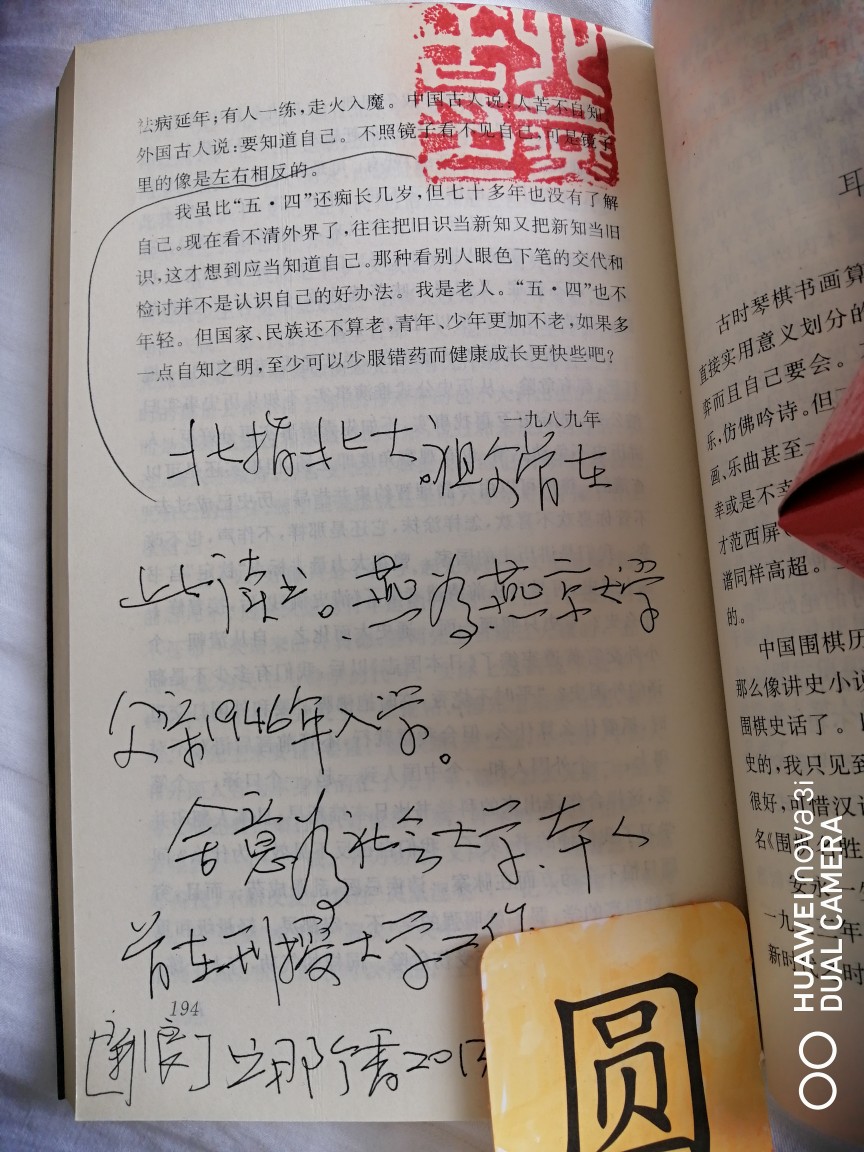 祛病延年；有人一练，走火入魔。中国古人说：人苦不自知。
外国古人说：要知道自己。不照镜子看不见自己，可是镜子
里的像是左右相反的。
我虽比“五·四”还痴长几岁，但七十多年也没有了解
自己。现在看不清外界了，往往把旧识当新知又把新知当旧
识，这才想到应当知道自己。那种看别人眼色下笔的交代和
检讨并不是认识自己的好办法。我是老人。“五·四”也不
年轻。但国家、民族还不算老，青年、少年更加不老，如果多
一点自知之明，至少可以少服错药而健康成长更快些吧？
一九八九年
北指北大。祖父曾在
此读书。燕为燕京大学
父亲1946年入学。
含意为社会大学、本人
曾在社授大学工作
194
圆
耳
古时琴棋书画算
直接实用意义划分的
弈而且自己要会。
乐，仿佛吟诗。但
画、乐曲甚至一
幸或是不幸
才范西屏
谱同样高超。
的。
中国围棋历
那么像讲史小说
围棋史话了。
史的，我只见到
很好，可惜汉
名《围棋名胜
安永一
一九三二年
新时
HUAWEI nova 3i
DUAL CAMERA